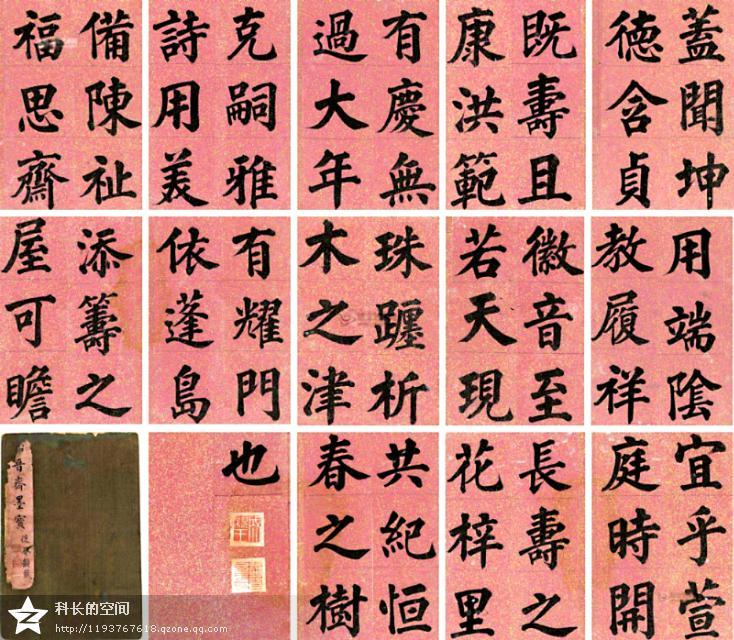 蓋聞坤
徳含貞
既壽且
康洪範
有慶無
過大年
克嗣雅
詩用美
備陳祉
福思齋
用端陰
教履祥
徽音至
若天現
珠躔析
木之津
有耀門
依蓬島
添籌之
屋可瞻
宜乎萱
庭時開
長壽之
花梓里
共紀恒
春之樹
也
齋墨寶
科长的空间
http://1193767618.qzone.qq.com/